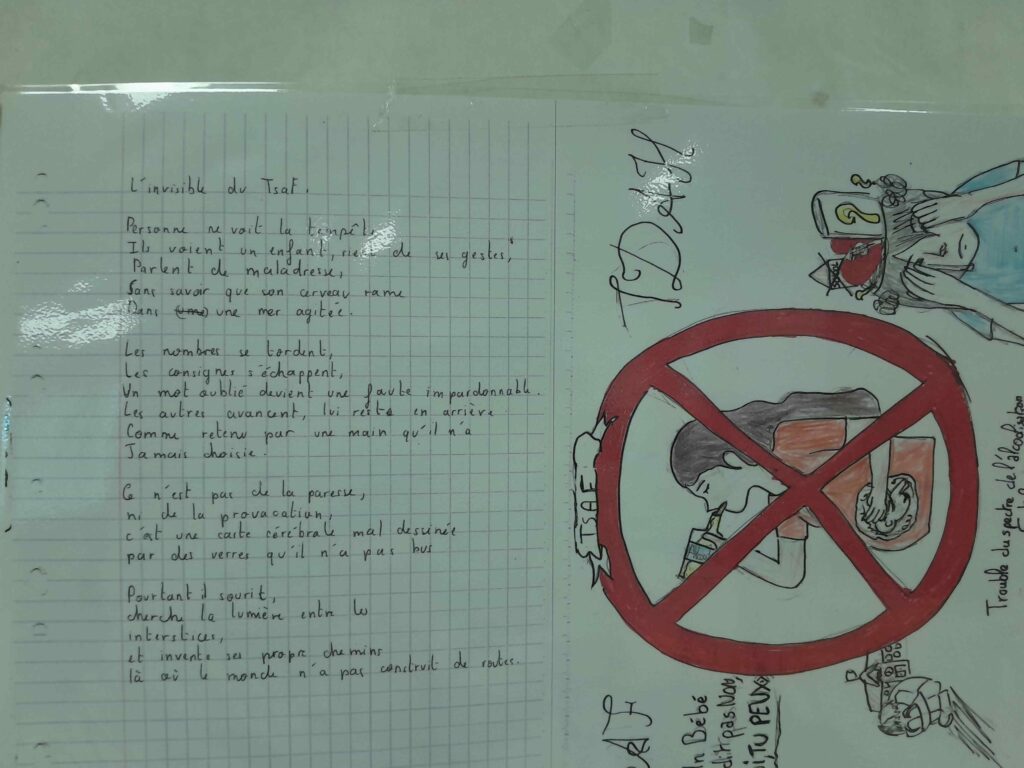 L'invisible du Tsaf.
Personne ne voit la tempête,
Ils voient un enfant, rient de ses gestes,
Parlent de maladresse,
Sans savoir que son cerveau rame
Dans une mer agitée.
Les nombres se tordent,
Les consignes s'échappent,
Un mot oublié devient une faute impardonnable.
Les autres avancent, lui reste en arrière
Comme retenu par une main qu'il n'a
Jamais choisie.
Ce n'est pas de la paresse,
ni de la provacation,
c'est une carte cérébrale mal dessinée
par des verres qu'il n'a pas bus
Pourtant il sourit,
cherche la lumière entre les
interstices,
et invente ses propre chemins
là où le monde n'a pas construit de routes.
TDAH
?
TSAF
Trouble du spectre de l'alcoolisation
AF
un Bébé
dit pas Non,
TU PEUX